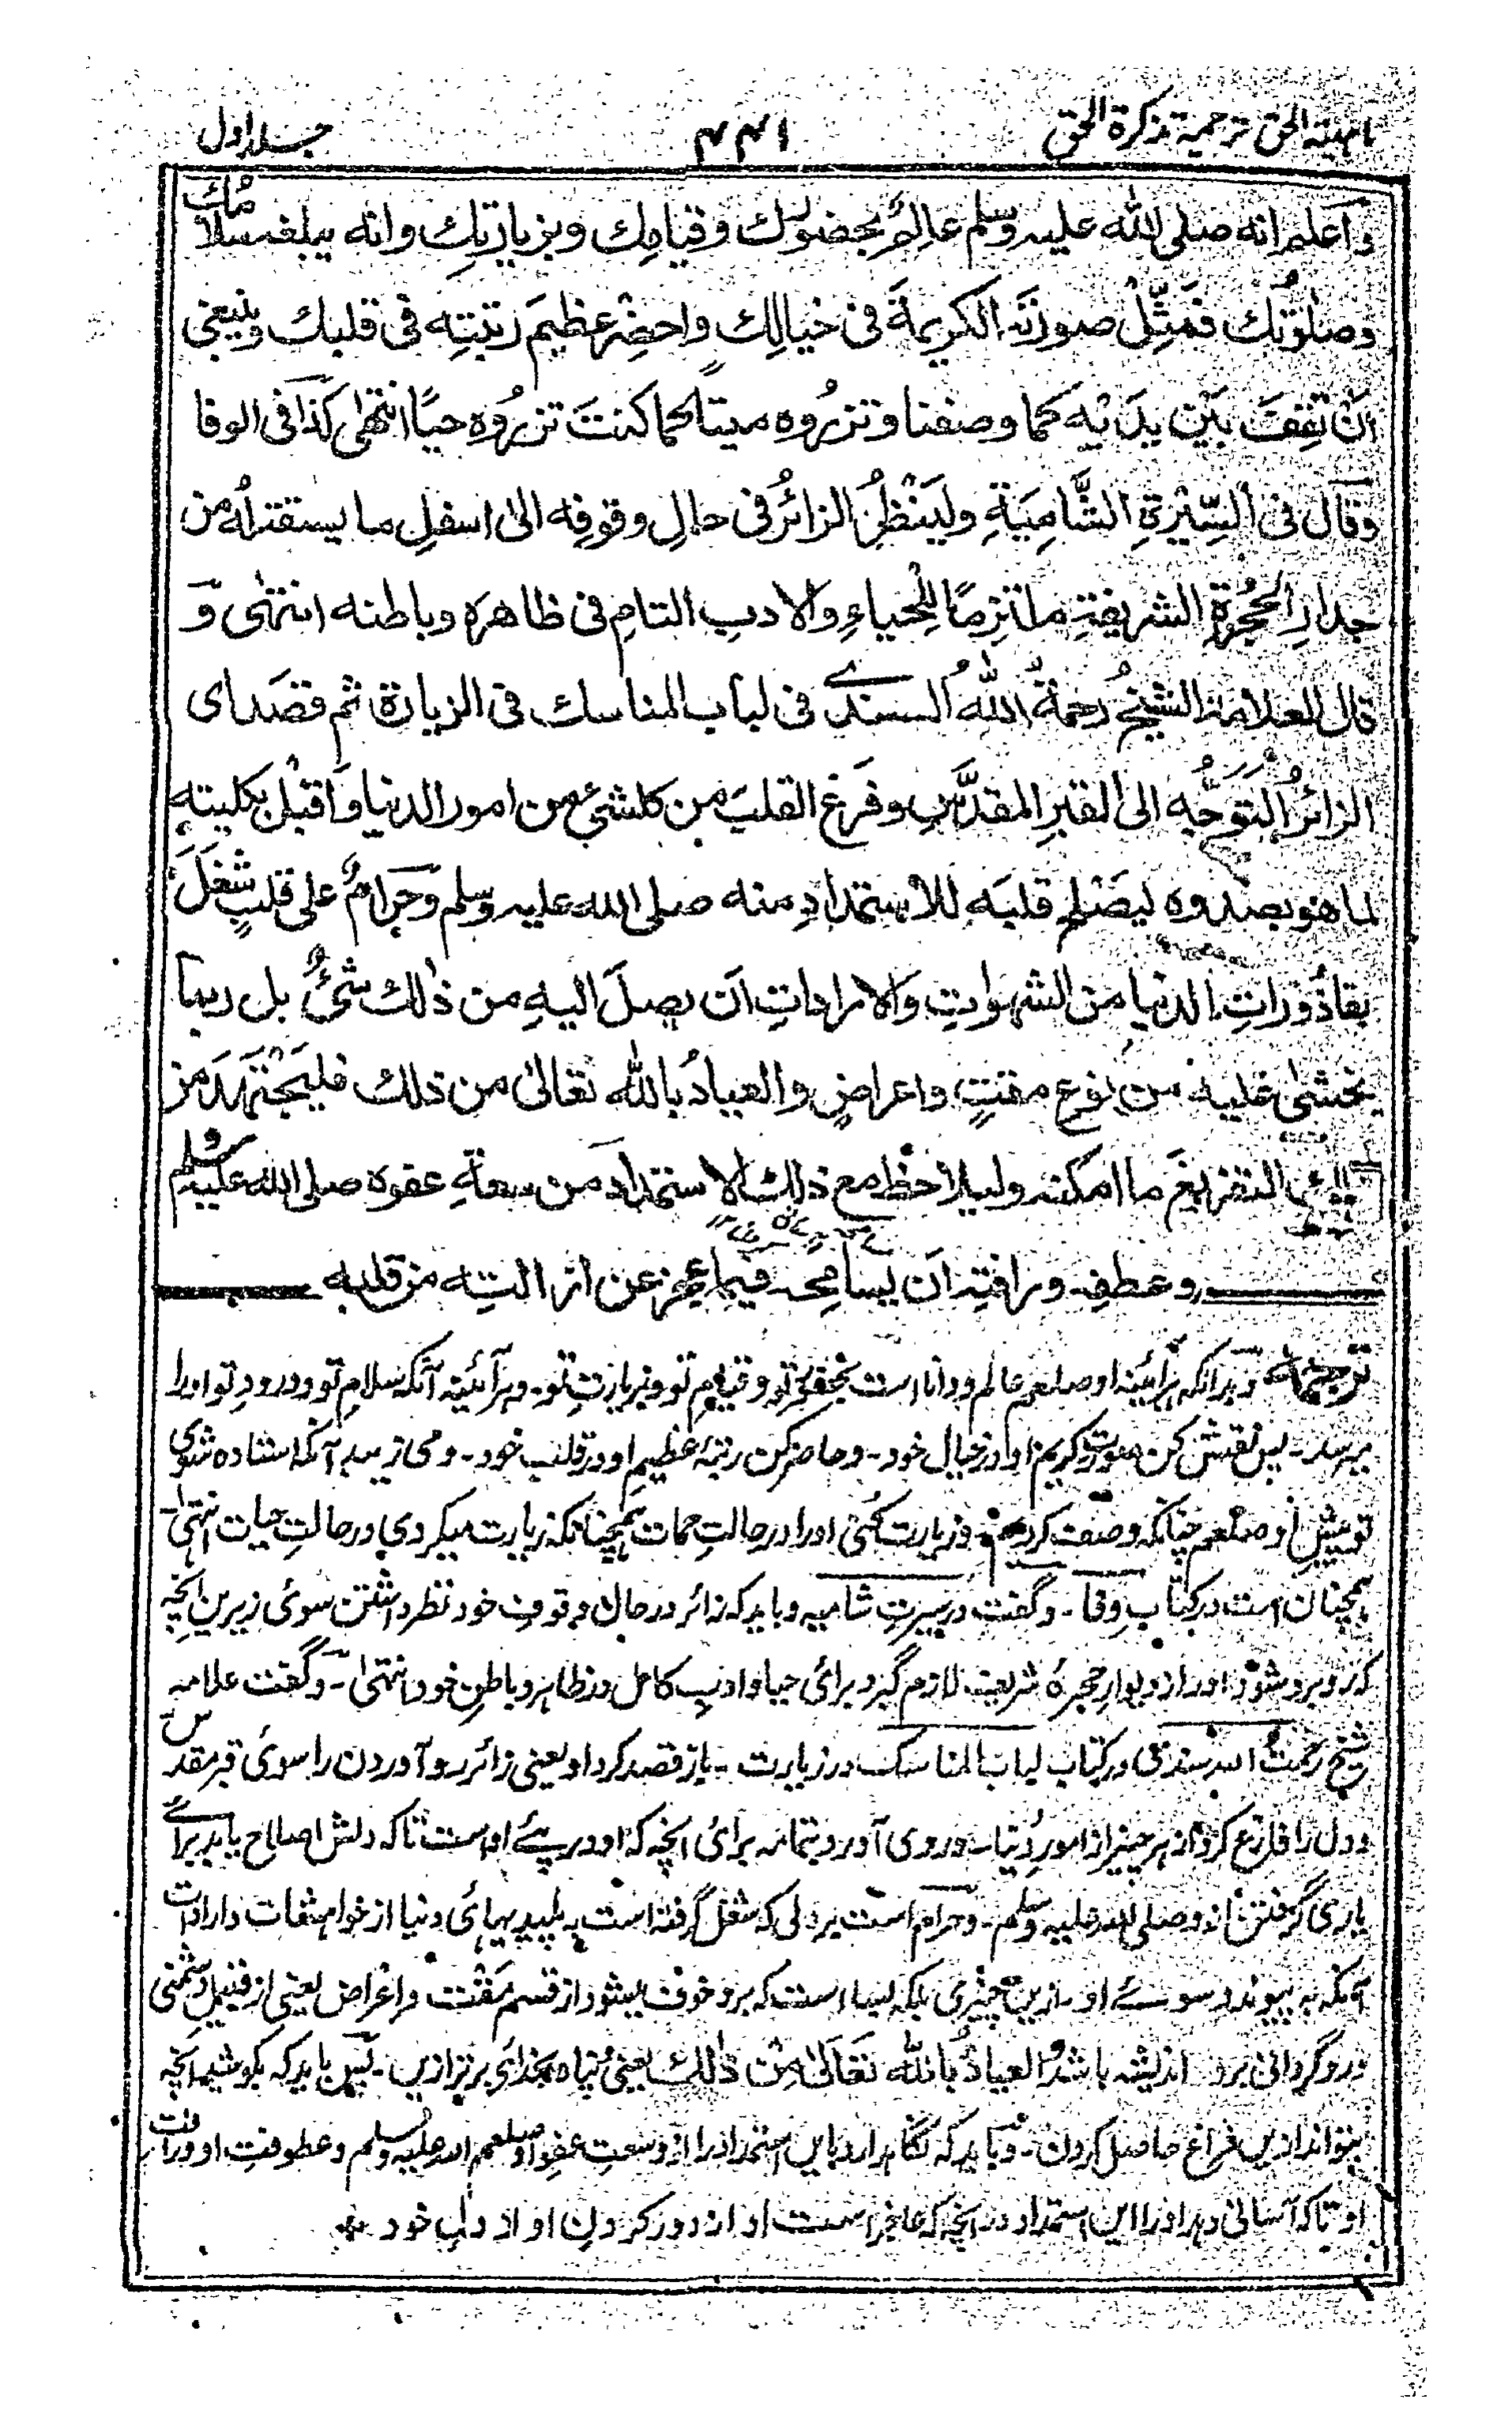 ترجمۃ تذکرۃ الحق ۴۴۱ جلد اول
واعلم انه صلی الله علیه وسلم عالِمٌ بحضورك وقیامِك وبزیارتِك وانه یبلغه سلامُك
وصلوٰتُك فمَثِّلْ صورتَه الکریمةَ فی خیالِك واحضِرْ عظیمَ رتبتِه فی قلبك وینبغی
اَنْ تَقِفَ بَیْنَ یدَیْه کما وصفنا وتزُروه میتًا کما کنتَ تزُروه حیًّا انتهٰی کذا فی الوفا
وقال فی السِّیْرةِ الشَّامِیَةِ ولْیَنْظُرِ الزائرُ فی حالِ وقوفِه الیٰ اسفلِ ما یستقبلُه من
جدارِ الحُجْرةِ الشریفةِ ملتزمًا للحیاءِ والادبِ التامِ فی ظاهرِه وباطنه انتهٰی وَ
قال العلامة الشیخُ رحمةُ اللهُ السندی فی لباب المناسك فی الزیارة ثم قصَد ای
الزائرُ التوَجُّه الی القبرِ المقدَّسِ وفَرَغ القلبَ من کلشیءٍ من امور الدنیا وَاقْبل بکلیته
لما هو بصدده لیصْلح قلبَه للاستمدادِ منه صلی الله علیه وسلم وحَرامٌ علی قلبٍ شُغِلَ
بقاذُوراتِ الدنیا من الشهواتِ وَالاراداتِ ان یصلَ الیهِ من ذٰلك شیءٌ بل ربما
یخشٰی علیه من نوع مقتٍ واعراضٍ والعیاذُ بالله تعالیٰ من ذلك فلیَجْتَهِدْ من
التفریغَ ما امکنه ولیلاحظْ مع ذلك الاستمدادَ من سعةِ عفوه صلی الله علیه وسلم
وعطفِه ورافتِه اَن یسامحه فیما عجز عن ازالتِه من قلبه
ترجمه وبدانکه ہرآئینه او صلعم عالم و دانا است بحضور تو وقیام تو وبزیارتِ تو۔ وہرآئینه آنکه سلامِ تو ودرودِ تو اورا
میرسد۔ پس نقش کن صورتِ کریم او در خیال خود۔ وحاضر کن رتبهٔ عظیمِ او در قلب خود۔ ومی زیبد آنکه استاده شوی
تو پیشِ او صلعم چنانکه وصف کردیم۔ وزیارت کنی اورا در حالتِ ممات همچنانکه زیارت میکردی در حالتِ حیات انتهٰی۔
همچنان است در کتابِ وفا۔ وگفت در سیرتِ شامیه وباید که زائر در حال وقوف خود نظر داشتن سوی زیرین انچه
که روبرو شود اورا از دیوارِ حجرهٔ شریف لازم گیرد برائی حیا وادبِ کامل در ظاهر وباطنِ خود انتهٰی۔ وگفت علامه
شیخ رحمتُ الله سندی در کتاب لباب المناسک در زیارت۔ باز قصد کرد او یعنی زائر رو آوردن را سوی قبر مقدس
ودل را فارغ کرد از ہر چیز از امورِ دُنیا۔ وروی آورد بتمامه برائی انچه که او در پئے اوست تا که دلش اصلاح یابد برائے
یاری گرفتن از و صلی الله علیه وسلم۔ وحرام است بر دلی که شغل گرفته است به پلیدیهای دنیا از خواهشات وارادات
آنکه به پیوندد سوئے او۔ ازین چیزی بلکه بسا است که برو خوف میشود از قسم مَقْت واعراض یعنی از قبیل دشمنی
وروگردانی برو اندیشه باشد والعیاذُ بالله تَعَالیٰ مِنْ ذٰلك یعنی پناه بخدای برتر ازین۔ پس باید که بکوشد انچه
بتواند ازین فراغ حاصل کردن۔ وباید که نگاهدارد باین استمداد را از وسعتِ عفوِ او صلی الله علیه وسلم وعطوفت او ورافت
او تا که آسانی دهد او را این استمداد در انچه که عاجز است او از دور کردنِ او از دلِ خود